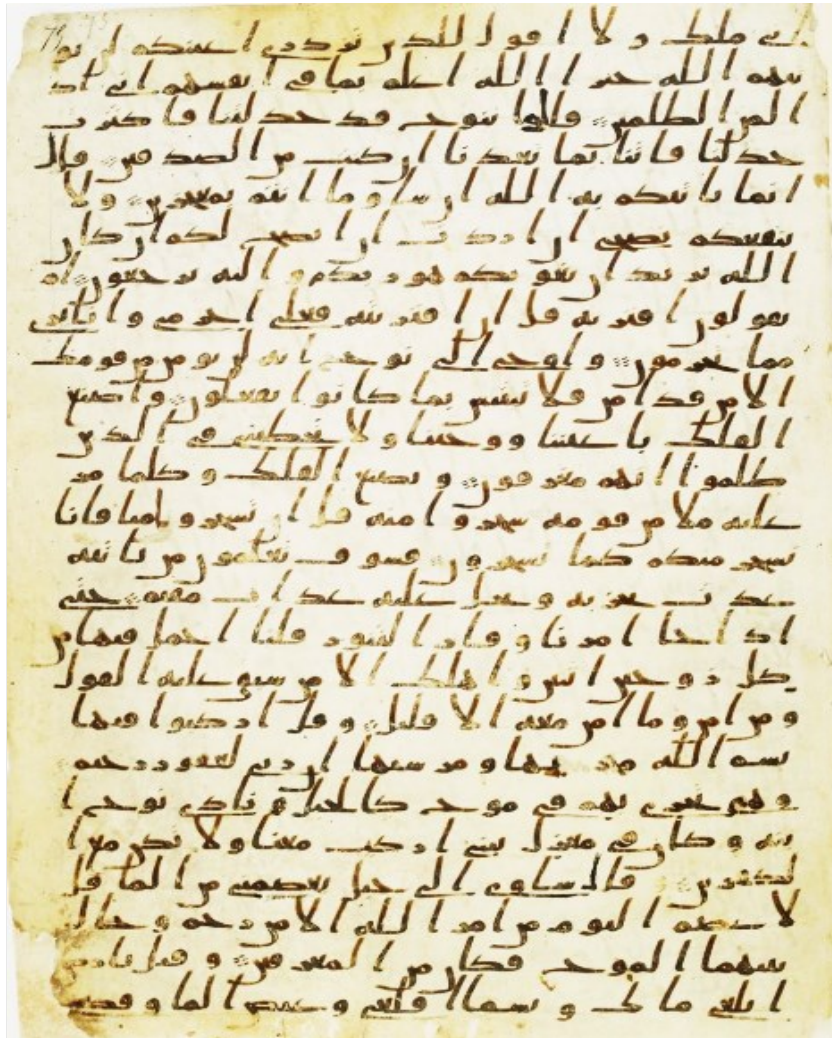 اني ملك ولا اقول للذين تزدري اعينكم لن يو
تيهم الله خيرا الله اعلم بما في انفسهم اني اذ
ا لمن الظلمين قالوا ينوح قد جدلتنا فاكثرت
جدلنا فاتنا بما تعدنا ان كنت من الصدقين قال
انما ياتيكم به الله ان شا وما انتم بمعجزين ولا
ينفعكم نصحي ان اردت ان انصح لكم ان كان
الله يريد ان يغويكم هو ربكم واليه ترجعون ام
يقولون افتريه قل ان افتريته فعلي اجرمي وانا بري
مما تجرمون واوحي الى نوح انه لن يومن من قومك
الا من قد امن فلا تبتس بما كانوا يفعلون واصنع
الفلك باعيننا ووحينا ولا تخطبني في الذين
ظلموا انهم مغرقون ويصنع الفلك وكلما مر
عليه ملا من قومه سخروا منه قل ان تسخروا منا فانا
نسخر منكم كما تسخرون فسوف تعلمون من ياتيه
عذب يخزيه ويحل عليه عذاب مقيم حتى
اذا جا امرنا وفار التنور قلنا احمل فيها من
كل زوجين اثنين واهلك الا من سبق عليه القول
ومن امن وما امن معه الا قليل وقل اركبوا فيها
بسم الله مجريها ومرسيها ان ربي لغفور رحيم
وهي تجري بهم في موج كالجبل ونادى نوح ا
بنه وكان في معزل يبني اركب معنا ولا تكن مع ا
لكفرين قال ساوي الى جبل يعصمني من الما قل
لا عصم اليوم من امر الله الا من رحم وحال
بينهما الموج فكان من المغرقين وقيل يارض
ابلعي ماك ويسما اقلعي وغيض الما وقضي